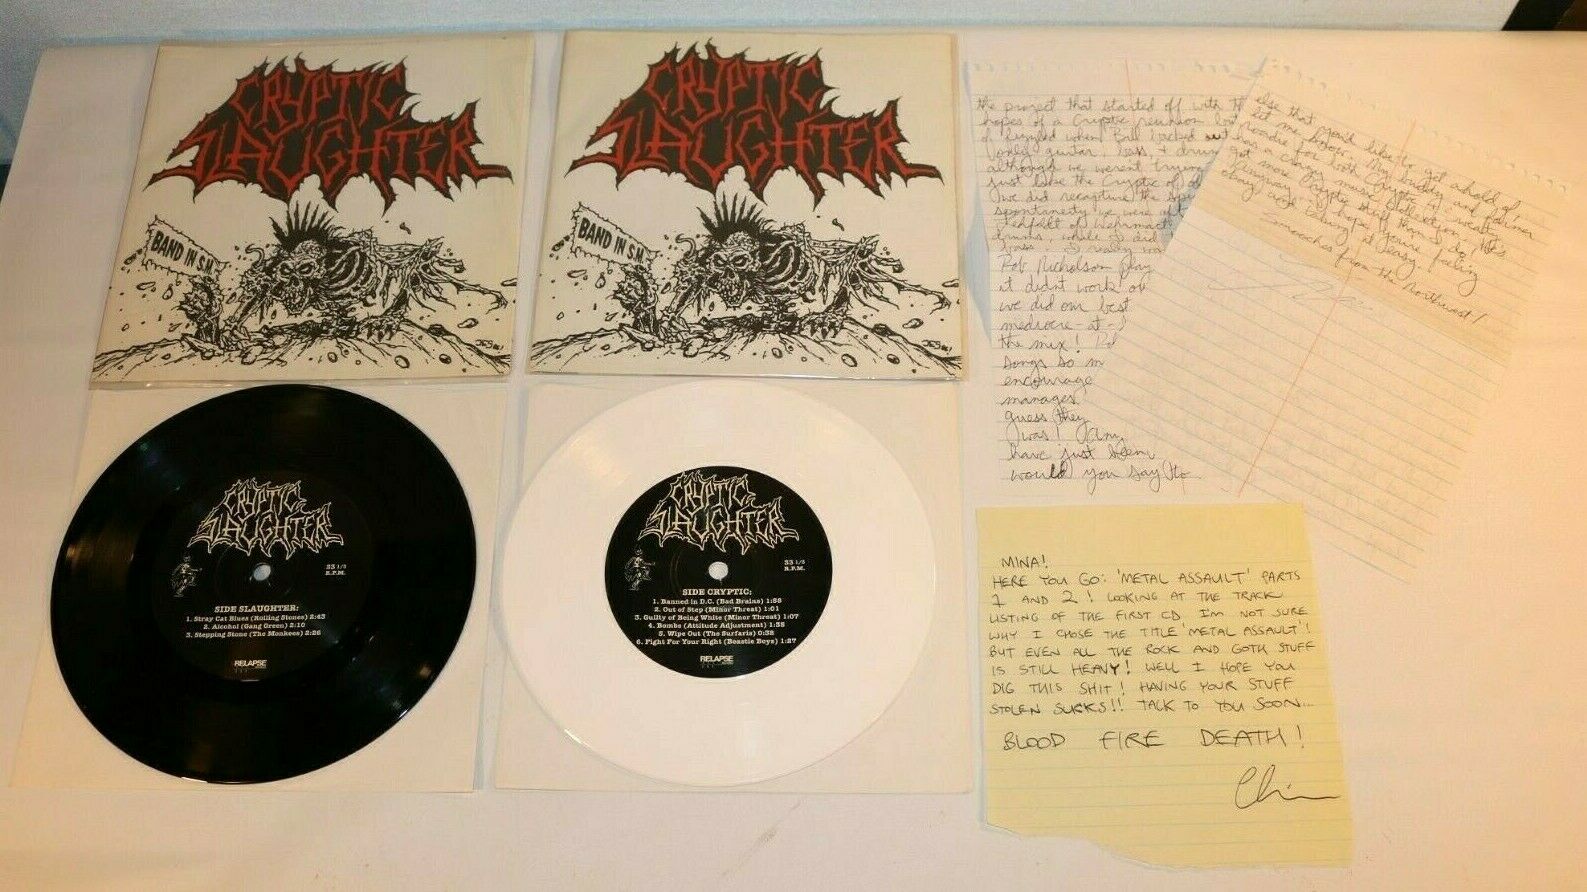 CRYPTIC
SLAUGHTER
BAND IN S.M.
CRYPTIC
SLAUGHTER
BAND IN S.M.
CRYPTIC
SLAUGHTER
33 1/3
R.P.M.
SIDE SLAUGHTER:
1. Stray Cat Blues (Rolling Stones) 2:43
2. Alcohol (Gang Green) 2:10
3. Stepping Stone (The Monkees) 2:26
RELAPSE
CRYPTIC
SLAUGHTER
33 1/3
R.P.M.
SIDE CRYPTIC:
1. Banned in D.C. (Bad Brains) 1:58
2. Out of Step (Minor Threat) 1:01
3. Guilty of Being White (Minor Threat) 1:07
4. Bombs (Attitude Adjustment) 1:35
5. Wipe Out (The Surfaris) 0:38
6. Fight For Your Right (Beastie Boys) 1:27
RELAPSE
the project that started off with
hopes of a Cryptic reunion but
fizzled when Bill backed out
guitar, bass, & drum
although we weren't trying
just like the Cryptic of
we did recapture the
spontaneity we were
of Wehrmacht
drums, while I did
Rob Nicholson play
it didnt work
we did our best
mediocre at
the mix!
songs so m
encourage
manages
guess they
was! Any
have just been
would you say to
else that you'd like to get ahold of,
let me know. My buddy and former
for both Cryptic & Sweat
has a crazy music collection. He's
got more Cryptic stuff than I do!
Anyway, I hope you're feeling
okay! Take it easy.
Smooches from the Northwest!
MINA!
HERE YOU GO: 'METAL ASSAULT' PARTS
1 AND 2! LOOKING AT THE TRACK
LISTING OF THE FIRST CD I'M NOT SURE
WHY I CHOSE THE TITLE 'METAL ASSAULT'!
BUT EVEN ALL THE ROCK AND GOTH STUFF
IS STILL HEAVY! WELL I HOPE YOU
DIG THIS SHIT! HAVING YOUR STUFF
STOLEN SUCKS!! TALK TO YOU SOON...
BLOOD FIRE DEATH!